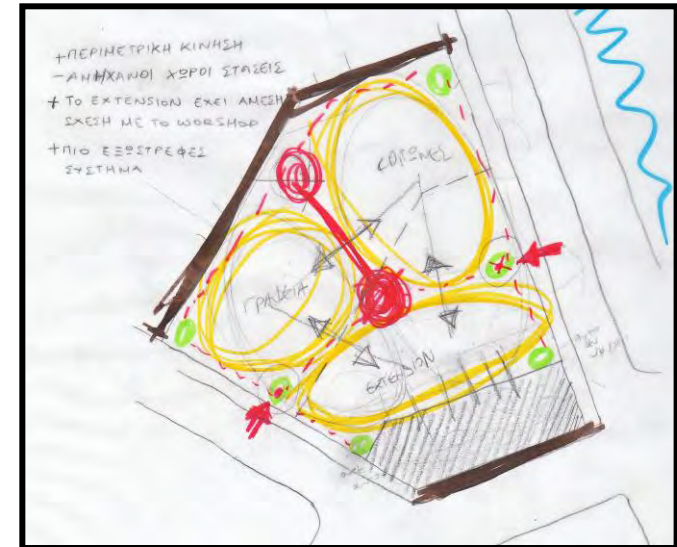 + ΠΕΡΙΜΕΤΡΙΚΗ ΚΙΝΗΣΗ
- ΑΜΗΧΑΝΟΙ ΧΩΡΟΙ ΣΤΑΣΕΙΣ
+ ΤΟ EXTENSION ΕΧΕΙ ΑΜΕΣΗ
ΣΧΕΣΗ ΜΕ ΤΟ WORSHOP
+ ΠΙΟ ΕΞΩΣΤΡΕΦΕΣ
ΣΥΣΤΗΜΑ
ΓΡΑΦΕΙΑ
EXTENSION